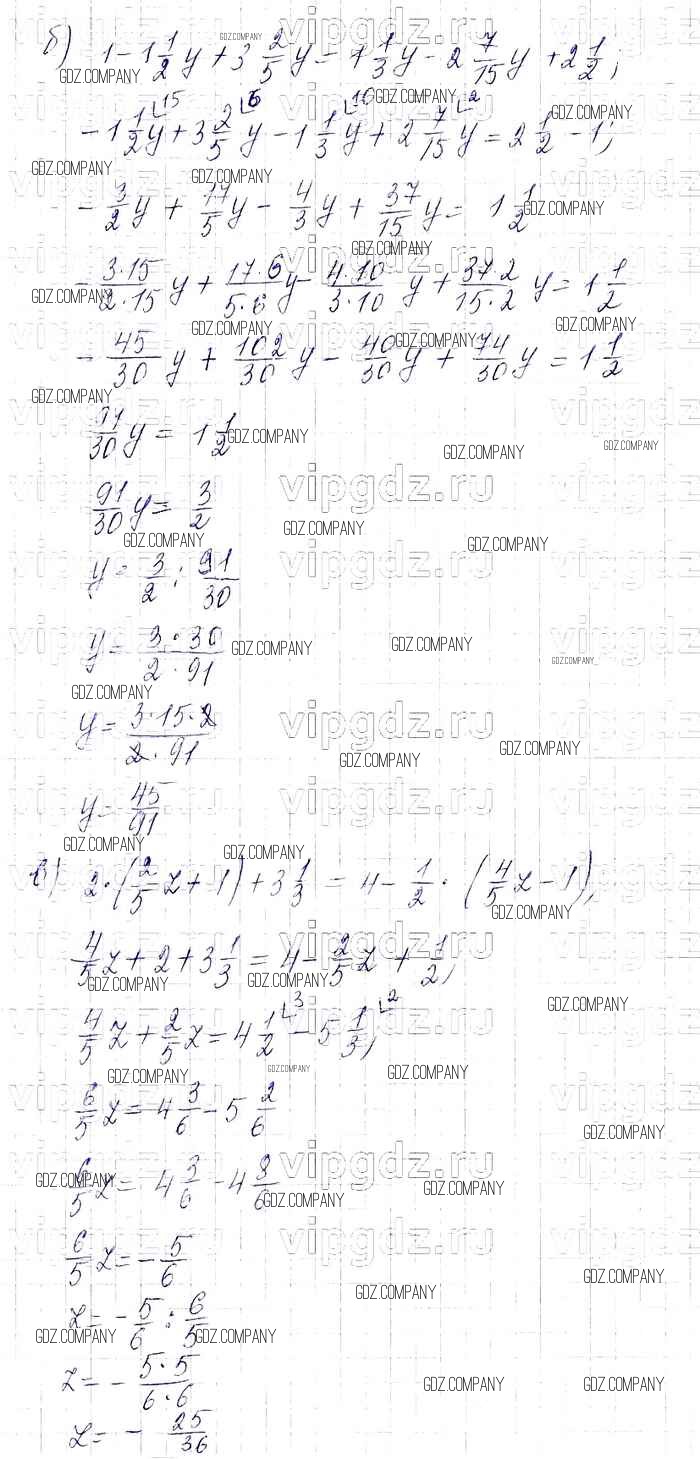 б) 1 - 1 1/2 y + 3 2/5 y = 1 1/3 y - 2 7/15 y + 2 1/2;
- 1 1/2 y + 3 2/5 y - 1 1/3 y + 2 7/15 y = 2 1/2 - 1;
- 3/2 y + 17/5 y - 4/3 y + 37/15 y = 1 1/2
- 3·15/2·15 y + 17·6/5·6 y - 4·10/3·10 y + 37·2/15·2 y = 1 1/2
- 45/30 y + 102/30 y - 40/30 y + 74/30 y = 1 1/2
91/30 y = 1 1/2
91/30 y = 3/2
y = 3/2 : 91/30
y = 3·30/2·91
y = 3·15·2/2·91
y = 45/91
в) 2·(2/5 z + 1) + 3 1/3 = 4 - 1/2 · (4/5 z - 1);
4/5 z + 2 + 3 1/3 = 4 - 2/5 z + 1/2;
4/5 z + 2/5 z = 4 1/2 - 5 1/3;
6/5 z = 4 3/6 - 5 2/6
6/5 z = 4 3/6 - 4 8/6
6/5 z = - 5/6
z = - 5/6 : 6/5
z = - 5·5/6·6
z = - 25/36
GDZ.COMPANY
vipgdz.ru